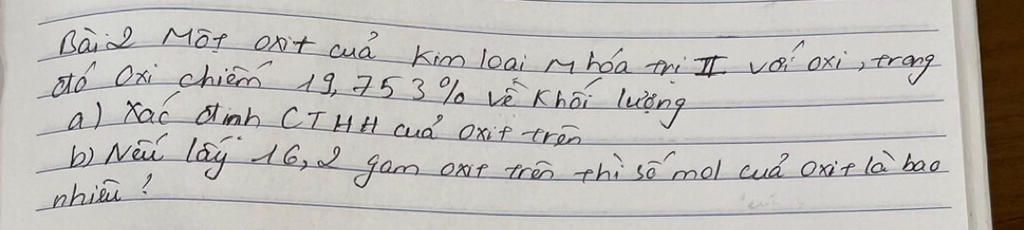 Bài 2 Một oxit của kim loại M hóa trị II với oxi, trong
đó Oxi chiếm 19,753% về khối lượng
a) Xác định CTHH của oxit trên
b) Nếu lấy 16,2 gam oxit trên thì số mol của oxit là bao
nhiêu?